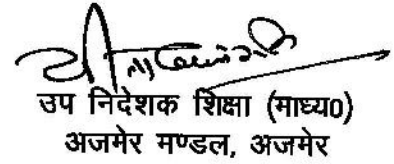 उप निदेशक शिक्षा (माध्य0)
अजमेर मण्डल, अजमेर